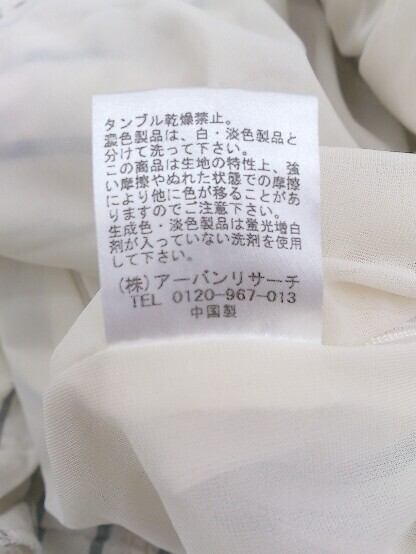 タンブル乾燥禁止。
濃色製品は、白・淡色製品と
分けて洗って下さい。
この商品は生地の特性上、強
い摩擦やぬれた状態での摩擦
により他に色が移ることがあ
りますのでご注意下さい。
生成色・淡色製品は蛍光増白
剤が入っていない洗剤を使用
して下さい。
(株)アーバンリサーチ
TEL 0120-967-013
中国製